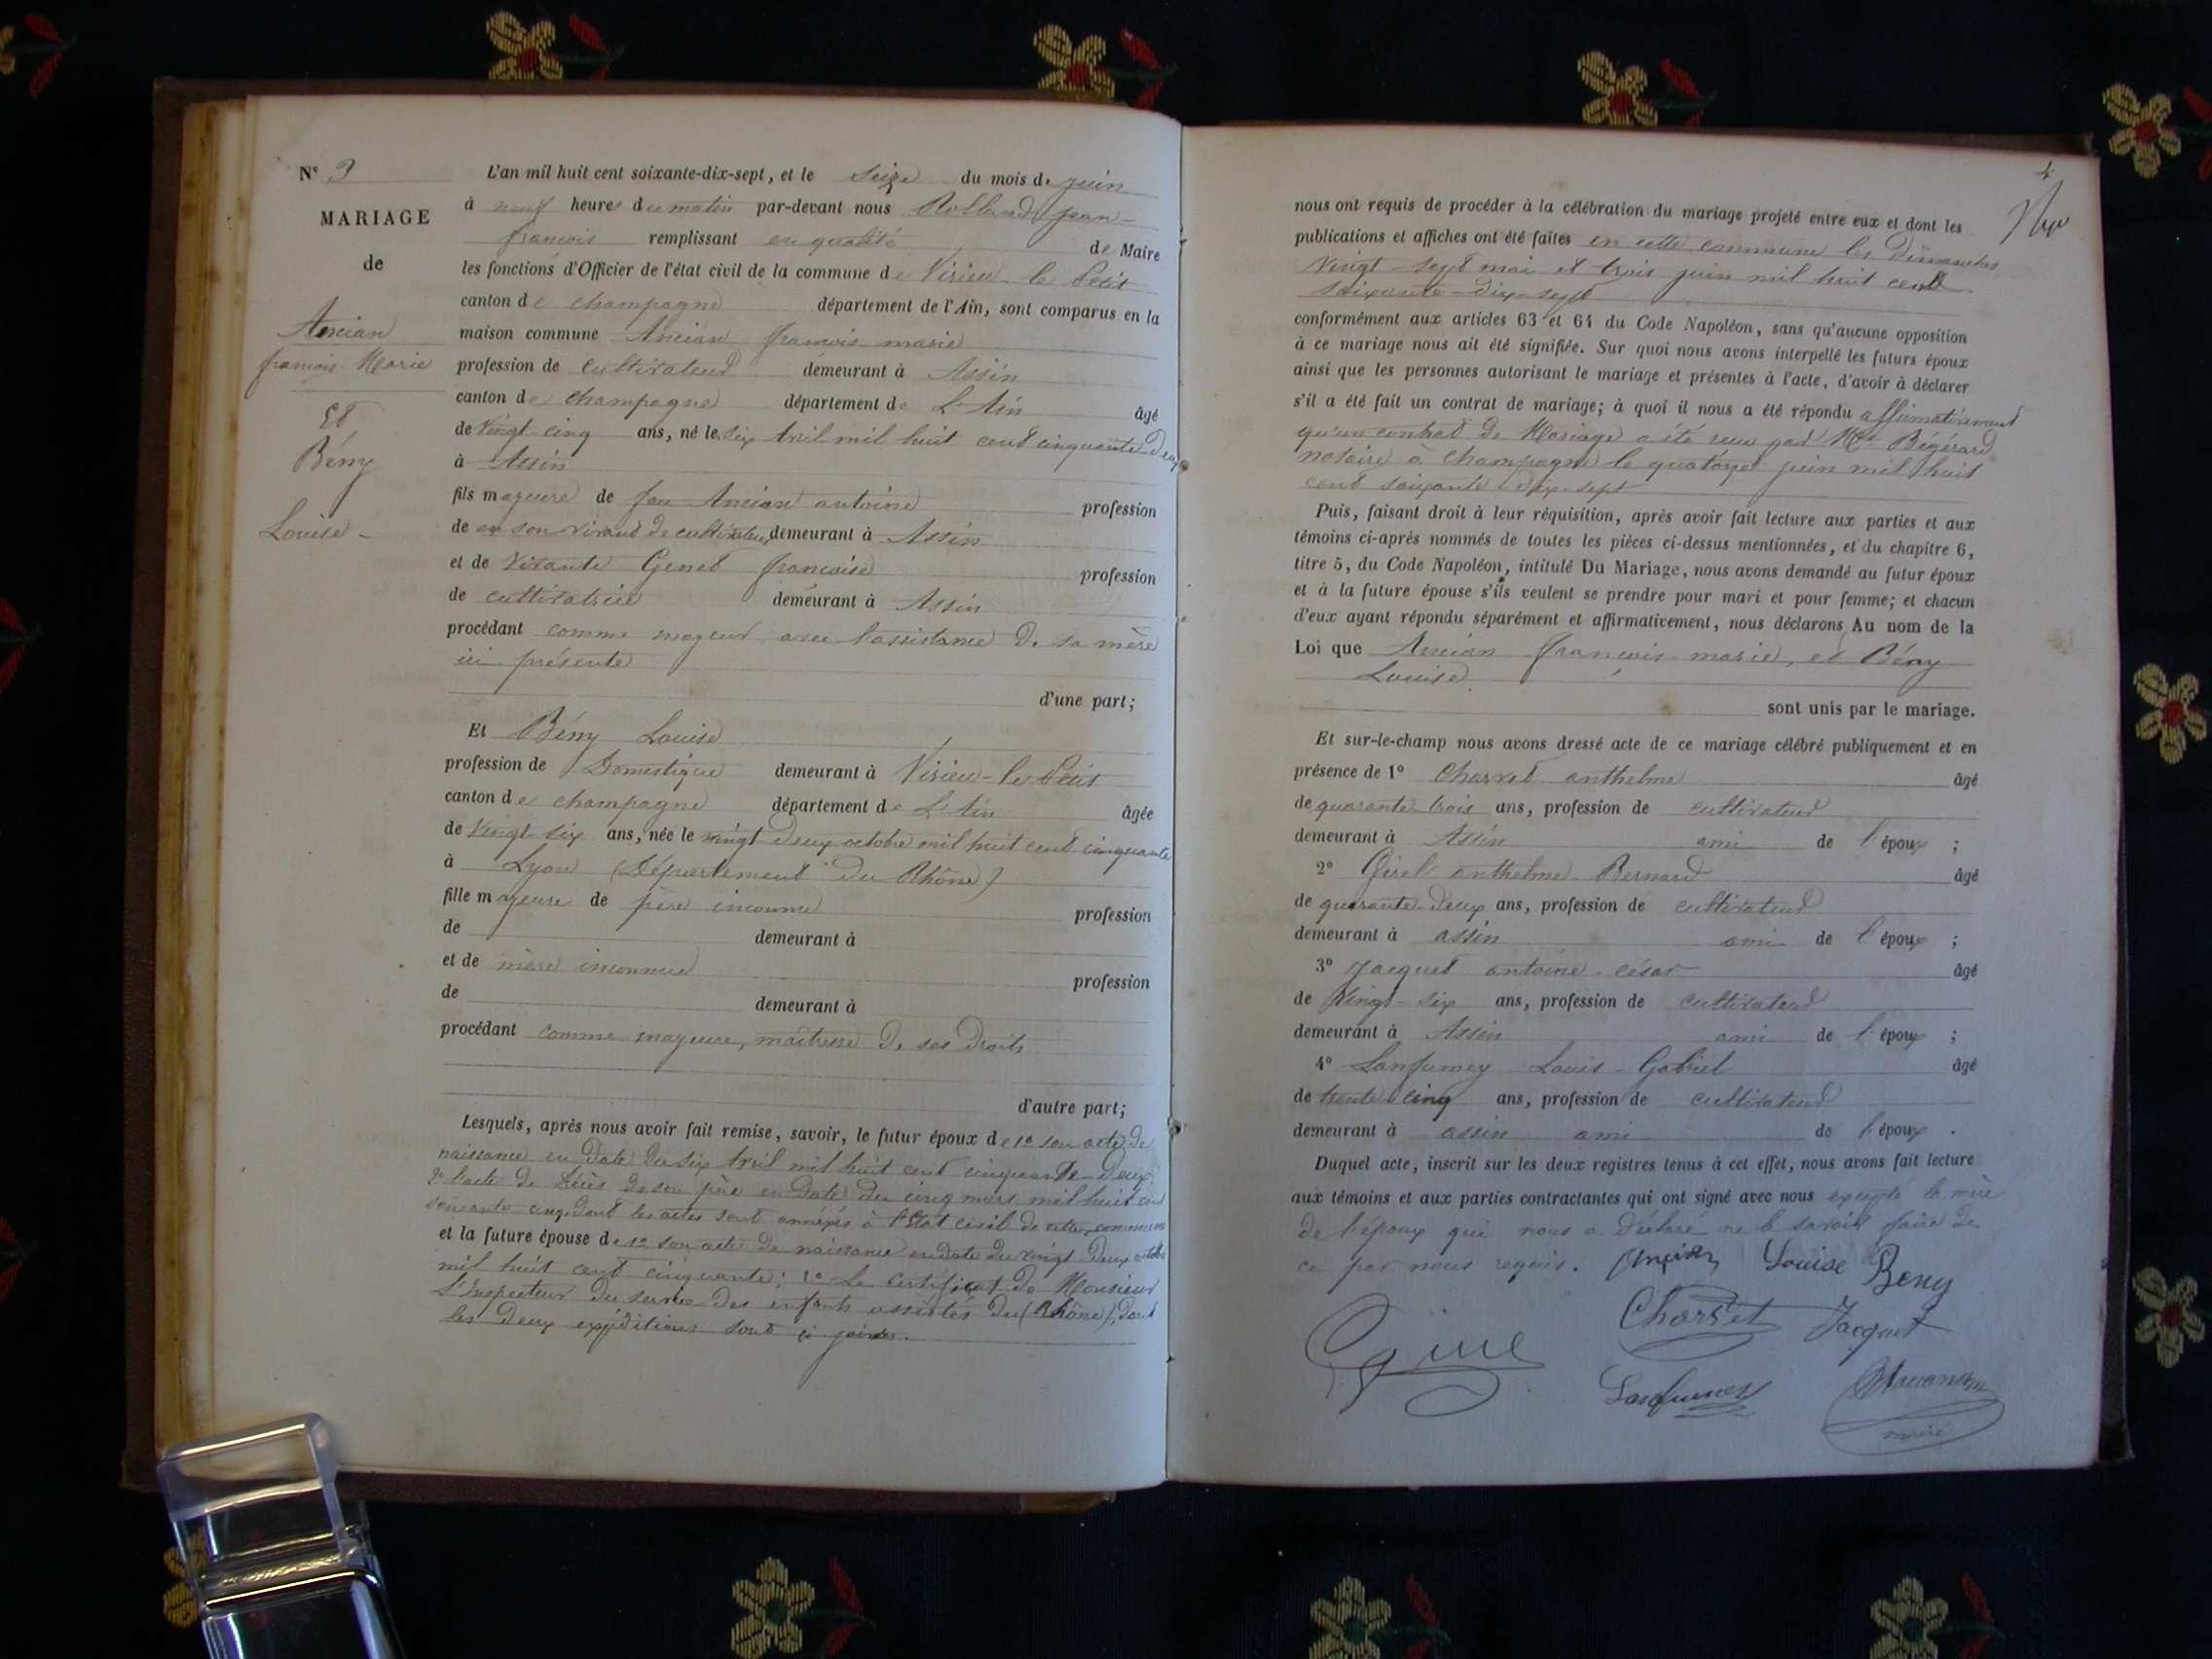 N° 3
MARIAGE
de
Ancian
françois-Marie
Et
Bény
Louise
L'an mil huit cent soixante-dix-sept, et le seize du mois de juin
à neuf heures du matin par-devant nous Rolland jean-
françois remplissant en qualité de Maire
les fonctions d'Officier de l'état civil de la commune de Virieu-le-Petit
canton de champagne département de l'Ain, sont comparus en la
maison commune Ancian françois marie
profession de cultivateur demeurant à Assin
canton de champagne département de L'Ain âgé
de vingt-cinq ans, né le six avril mil huit cent cinquante-deux
à Assin
fils majeure de feu Ancian antoine profession
de en son vivant de cultivateur, demeurant à Assin
et de vivante Genet françoise profession
de cultivatrice demeurant à Assin
procédant comme majeur avec l'assistance de sa mère
ici présente
d'une part;
Et Bény Louise
profession de Domestique demeurant à Virieu-le-Petit
canton de champagne département de L'Ain âgée
de vingt-six ans, née le vingt-deux octobre mil huit cent cinquante
à Lyon (Département du Rhône)
fille majeure de père inconnu profession
de demeurant à
et de mère inconnue profession
de demeurant à
procédant comme majeure, maîtresse de ses droits
d'autre part;
Lesquels, après nous avoir fait remise, savoir, le futur époux de 1° son acte de
naissance en date du six avril mil huit cent cinquante-deux;
2° l'acte de Décès de son père en date du cinq mars mil huit cent
soixante-cinq, dont les actes sont annexés à l'état civil de cette commune
et la future épouse de 1° son acte de naissance en date du vingt deux octobre
mil huit cent cinquante; 2° Le certificat de Monsieur
L'Inspecteur du service des enfants assistés du (Rhône), dont
les deux expéditions sont ci jointes.
4
nous ont requis de procéder à la célébration du mariage projeté entre eux et dont les
publications et affiches ont été faites en cette commune les Dimanches
vingt-sept mai et trois juin mil huit cent
soixante-dix-sept
conformément aux articles 63 et 64 du Code Napoléon, sans qu'aucune opposition
à ce mariage nous ait été signifiée. Sur quoi nous avons interpellé les futurs époux
ainsi que les personnes autorisant le mariage et présentes à l'acte, d'avoir à déclarer
s'il a été fait un contrat de mariage; à quoi il nous a été répondu affirmativement
qu'un contrat de Mariage a été reçu par Me Bégérard
notaire à champagne le quatorze juin mil huit
cent soixante-dix-sept
Puis, faisant droit à leur réquisition, après avoir fait lecture aux parties et aux
témoins ci-après nommés de toutes les pièces ci-dessus mentionnées, et du chapitre 6,
titre 5, du Code Napoléon, intitulé Du Mariage, nous avons demandé au futur époux
et à la future épouse s'ils veulent se prendre pour mari et pour femme; et chacun
d'eux ayant répondu séparément et affirmativement, nous déclarons Au nom de la
Loi que Ancian françois-marie, et Bény
Louise
sont unis par le mariage.
Et sur-le-champ nous avons dressé acte de ce mariage célébré publiquement et en
présence de 1° Charvet anthelme âgé
de quarante-trois ans, profession de cultivateur
demeurant à Assin ami de l'époux ;
2° Girel anthelme-Bernard âgé
de quarante-deux ans, profession de cultivateur
demeurant à assin ami de l'époux ;
3° Jacquet antoine-césar âgé
de vingt-six ans, profession de cultivateur
demeurant à Assin ami de l'époux ;
4° Lanfumey Louis-Gabriel âgé
de trente-cinq ans, profession de cultivateur
demeurant à assin ami de l'époux .
Duquel acte, inscrit sur les deux registres tenus à cet effet, nous avons fait lecture
aux témoins et aux parties contractantes qui ont signé avec nous excepté la mère
de l'époux qui nous a déclaré ne le savoir faire de
ce par nous requis. Ancian Louise Beny
Charvet Jacquet
Lanfumey
maire